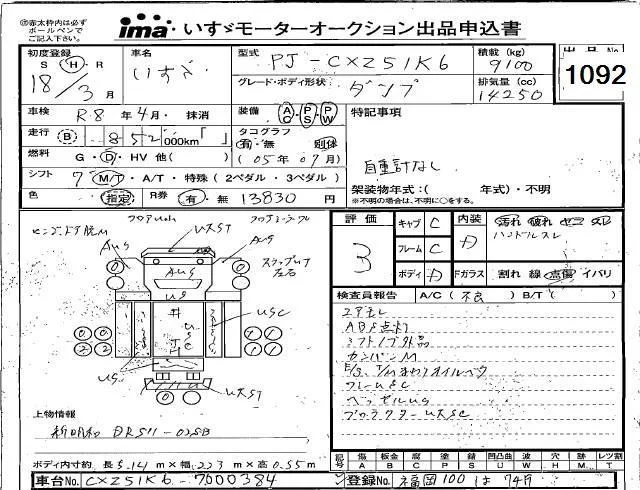 ㊟赤太枠内は必ず
ボールペンで
ご記入下さい。
ima いすゞモーターオークション出品申込書
1092
初度登録 S・H・R 18年3月
車名 いすゞ
型式 PJ-CXZ51K6
積載(kg) 9100
グレード・ボディ形状 ダンプ
排気量(cc) 14250
車検 R.8年4月・抹消
装備 AC・PS・PW
特記事項
走行 B 852,000km「 」
タコグラフ 有・無 別体
燃料 G・D・HV 他( )
(05年07月)
自重計なし
シフト 7 M/T・A/T・特殊(2ペダル・3ペダル)
架装物年式:( 年式)・不明
※不明の場合は、不明に○をする。
色 指定 R券 有・無 13830円
評価 3
キャブ C
フレーム C
ボディ A
内装 A
汚れ 破れ コゲ スレ
ハンドルスレ
Fガラス 割れ 線 点傷 イバリ
UKST
AUS
AUS
AUS
US
USC
US
UKST
スラップUT
左右
検査員報告 A/C(不良) B/T( )
エアモレ
ABS点灯
シフトノブ外品
E/g、T/Mまわりオイルベタ
フレームSC
ベッセルUS
プロテクターUKSC
上物情報
新明和 DR511-02SB
ボディ内寸約 長5.14m×幅2.23m×高0.55m
記号 傷A 板金B 腐C 塗P 錆S 凹凸曲U 波W 穴H 跡M レツ割T
車台No. CXZ51K6-7000384
登録No. 福岡100は74月